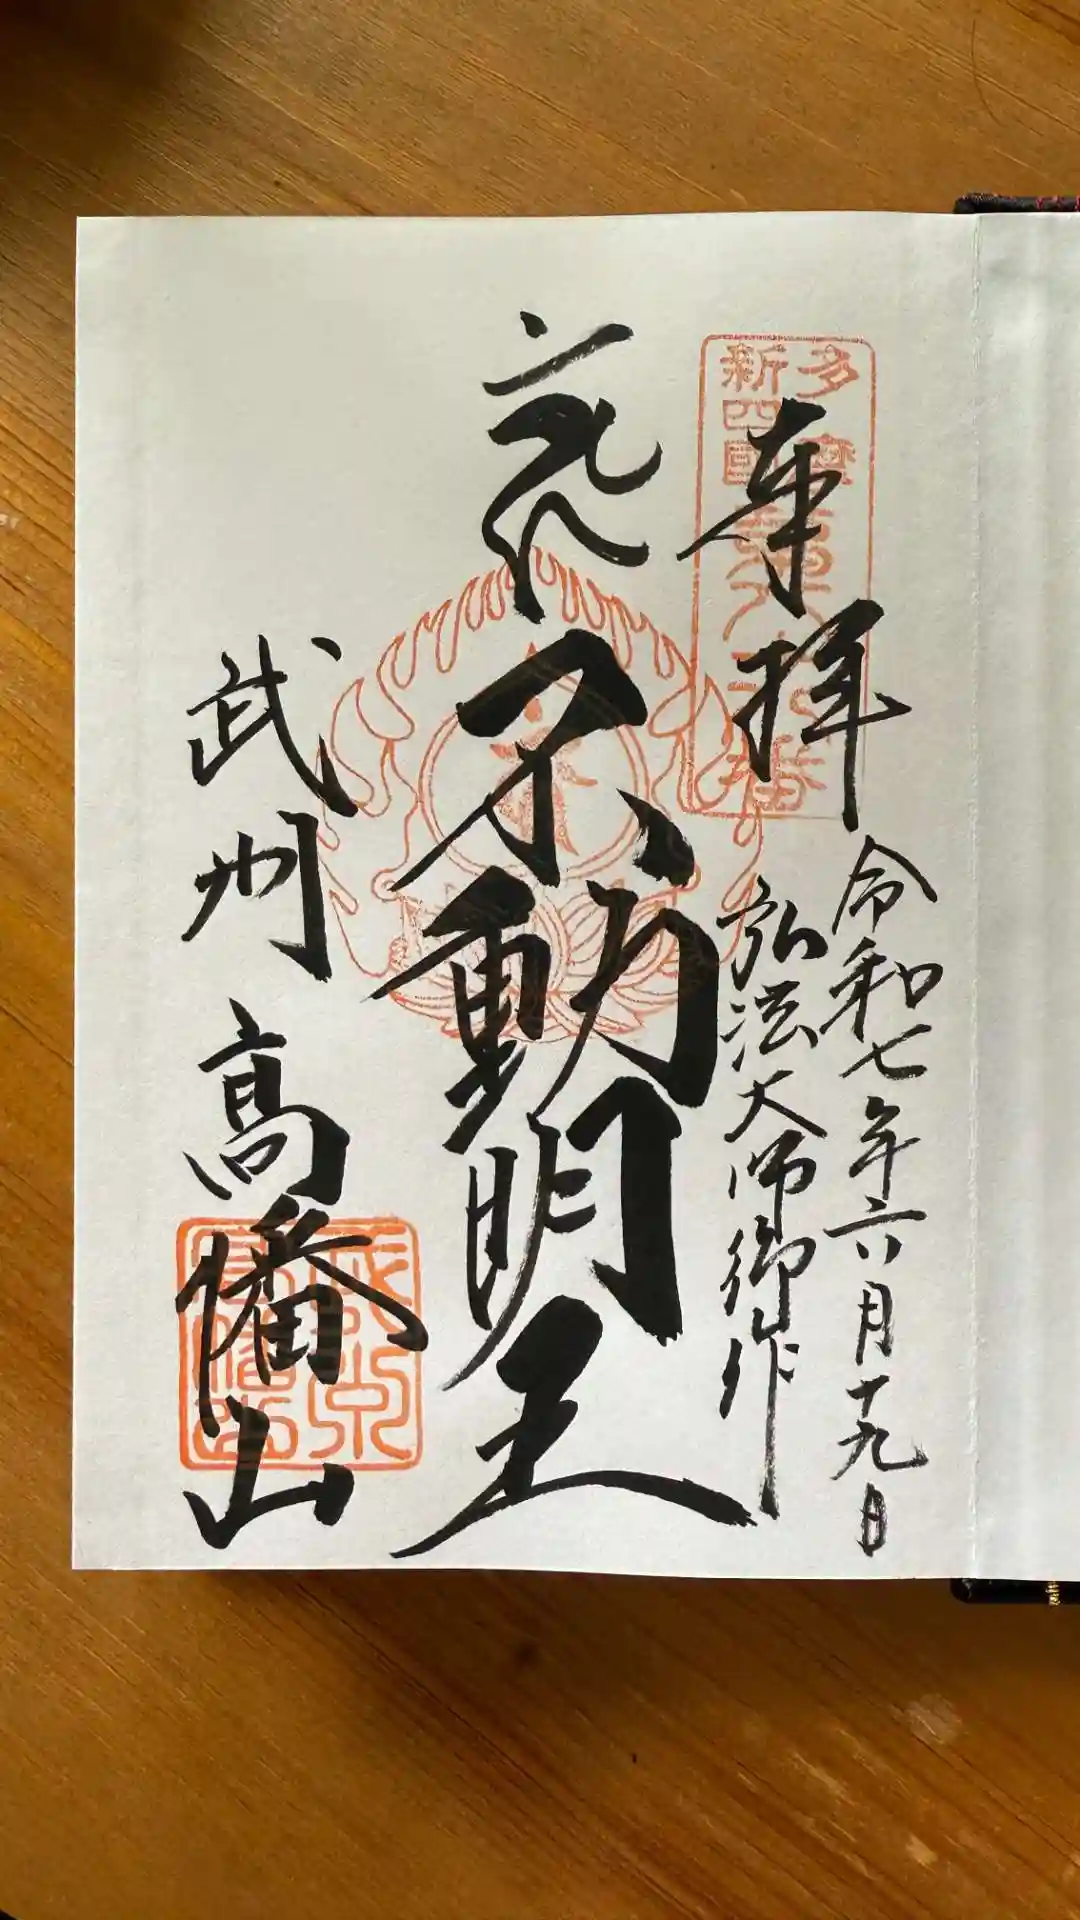 奉拝
令和七年六月十九日
弘法大師御作
不動明王
武州
高幡山
多摩
新四國
第八十八番